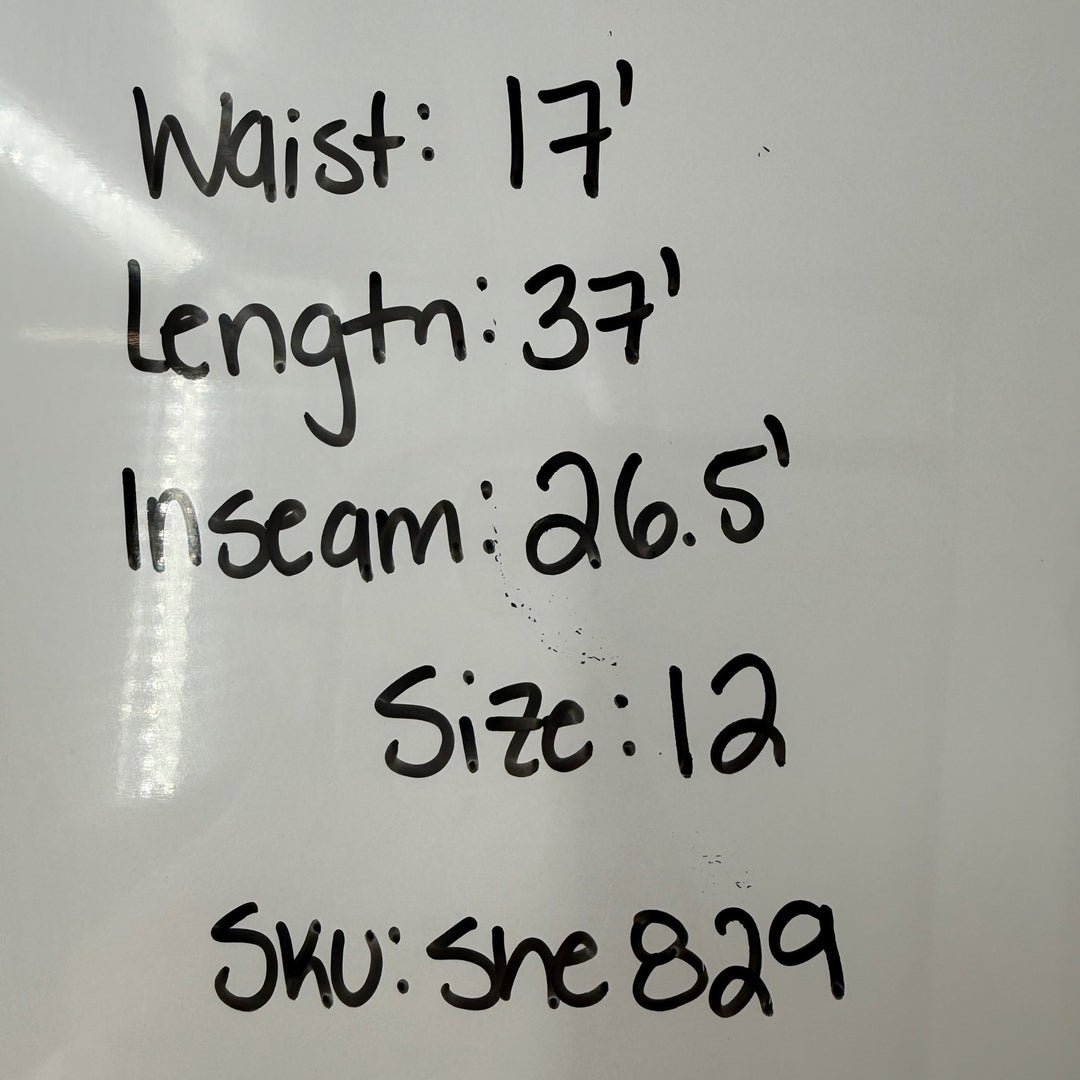 Waist: 17'
Length: 37'
Inseam: 26.5'
Size: 12
Sku: She 829